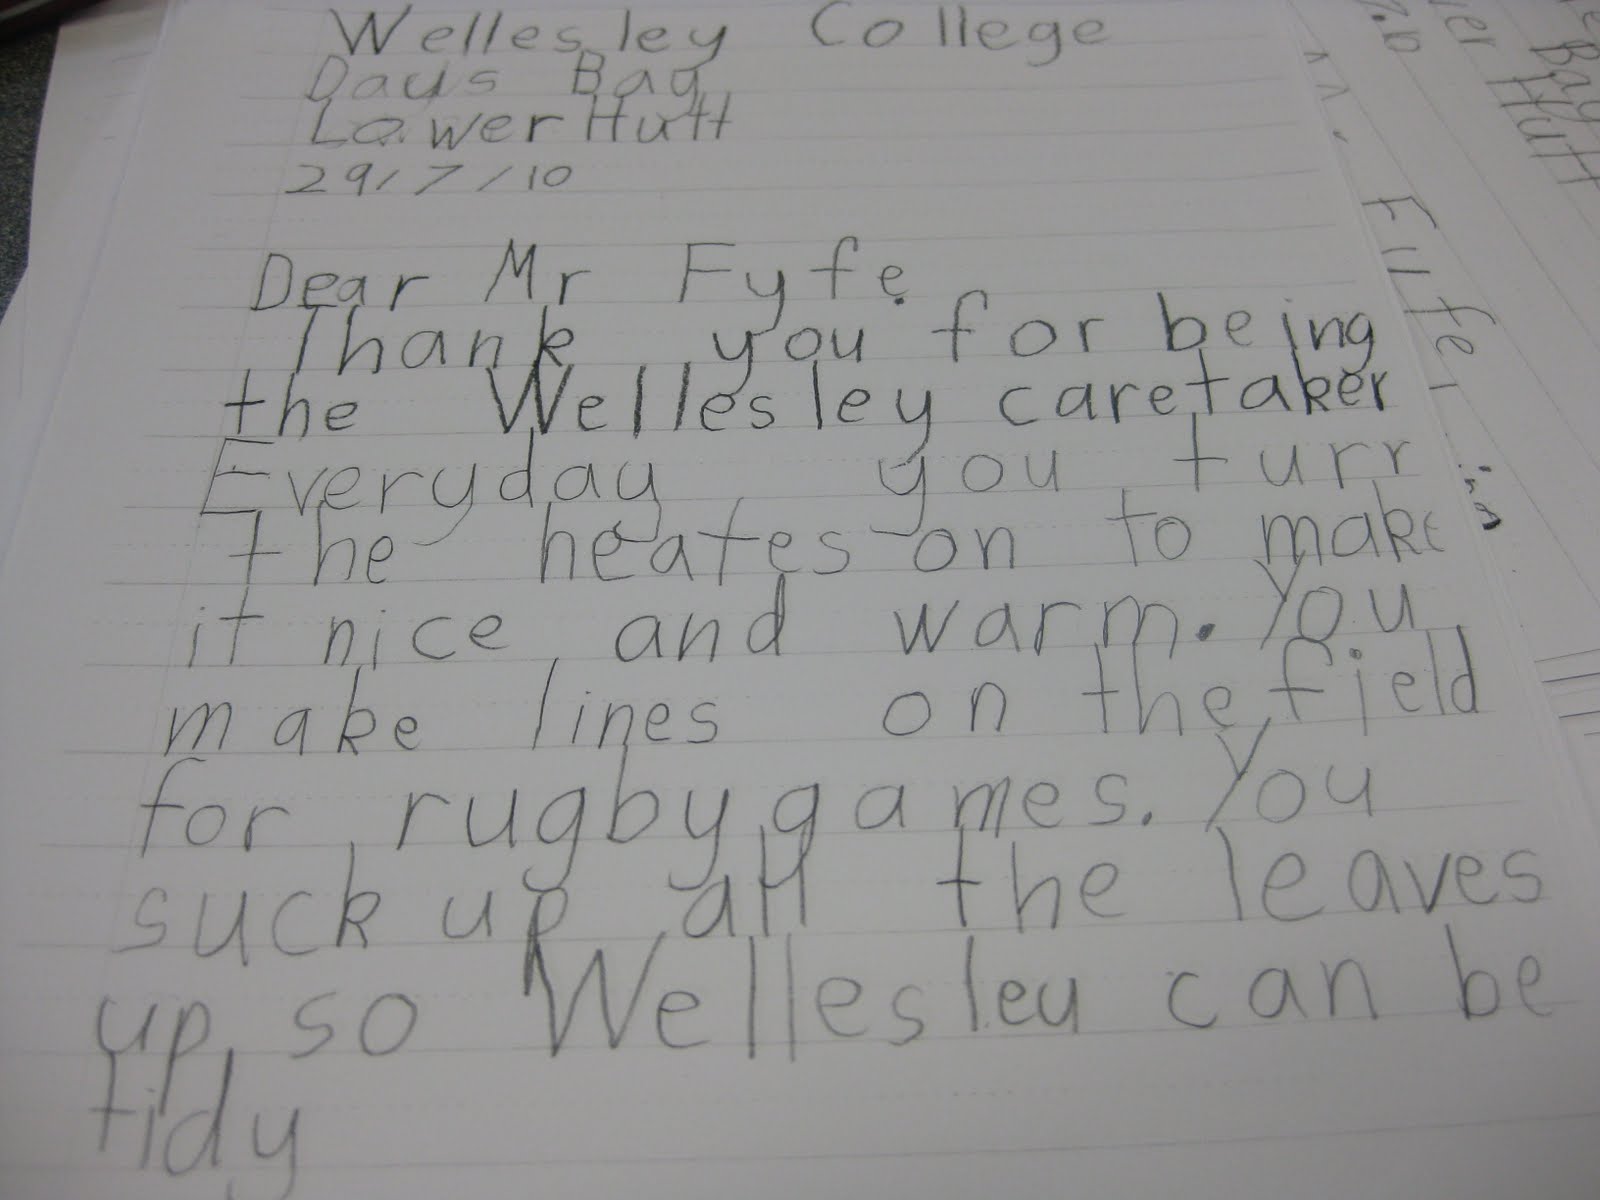 Wellesley College
Daus Bay
Lower Hutt
29/7/10
Dear Mr Fyfe.
Thank you for being
the Wellesley caretaker
Everyday you turr
the heates on to make
it nice and warm. You
make lines on the field
for rugby games. You
suck up all the leaves
up so Wellesley can be
tidy
Hutt